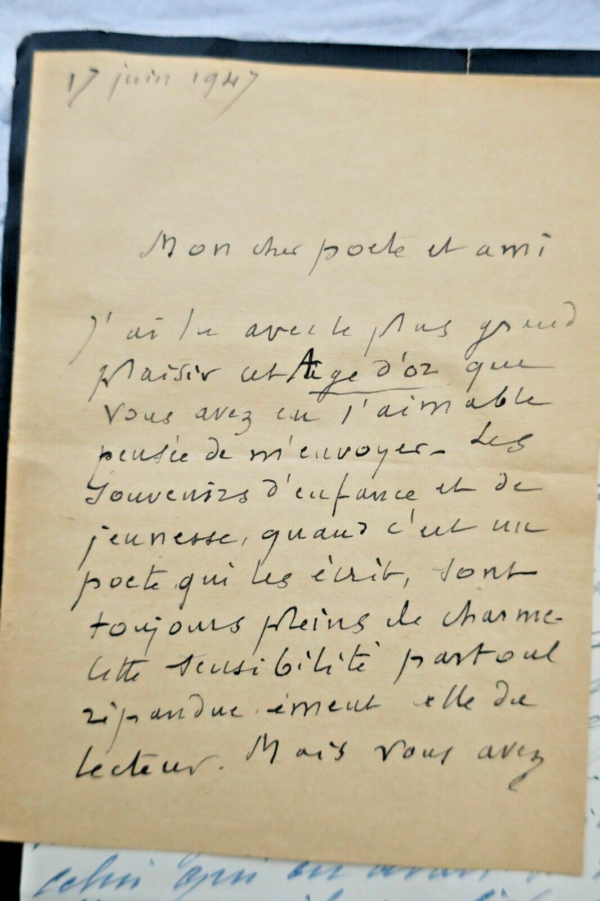 17 juin 1947
Mon cher poete et ami
J'ai lu avec le plus grand
plaisir cet Age d'or que
vous avez eu l'aimable
pensée de m'envoyer. Les
souvenirs d'enfance et de
jeunesse, quand c'est un
poete qui les écrit, sont
toujours pleins de charme.
Cette sensibilité partout
répandue émeut celle du
lecteur. Mais vous avez
celui qui